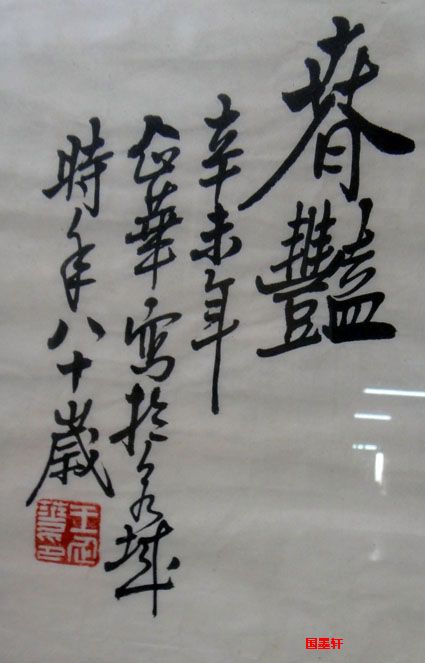 春豔
辛未年
企華寫於城
時年八十歲
王企華印
国墨轩